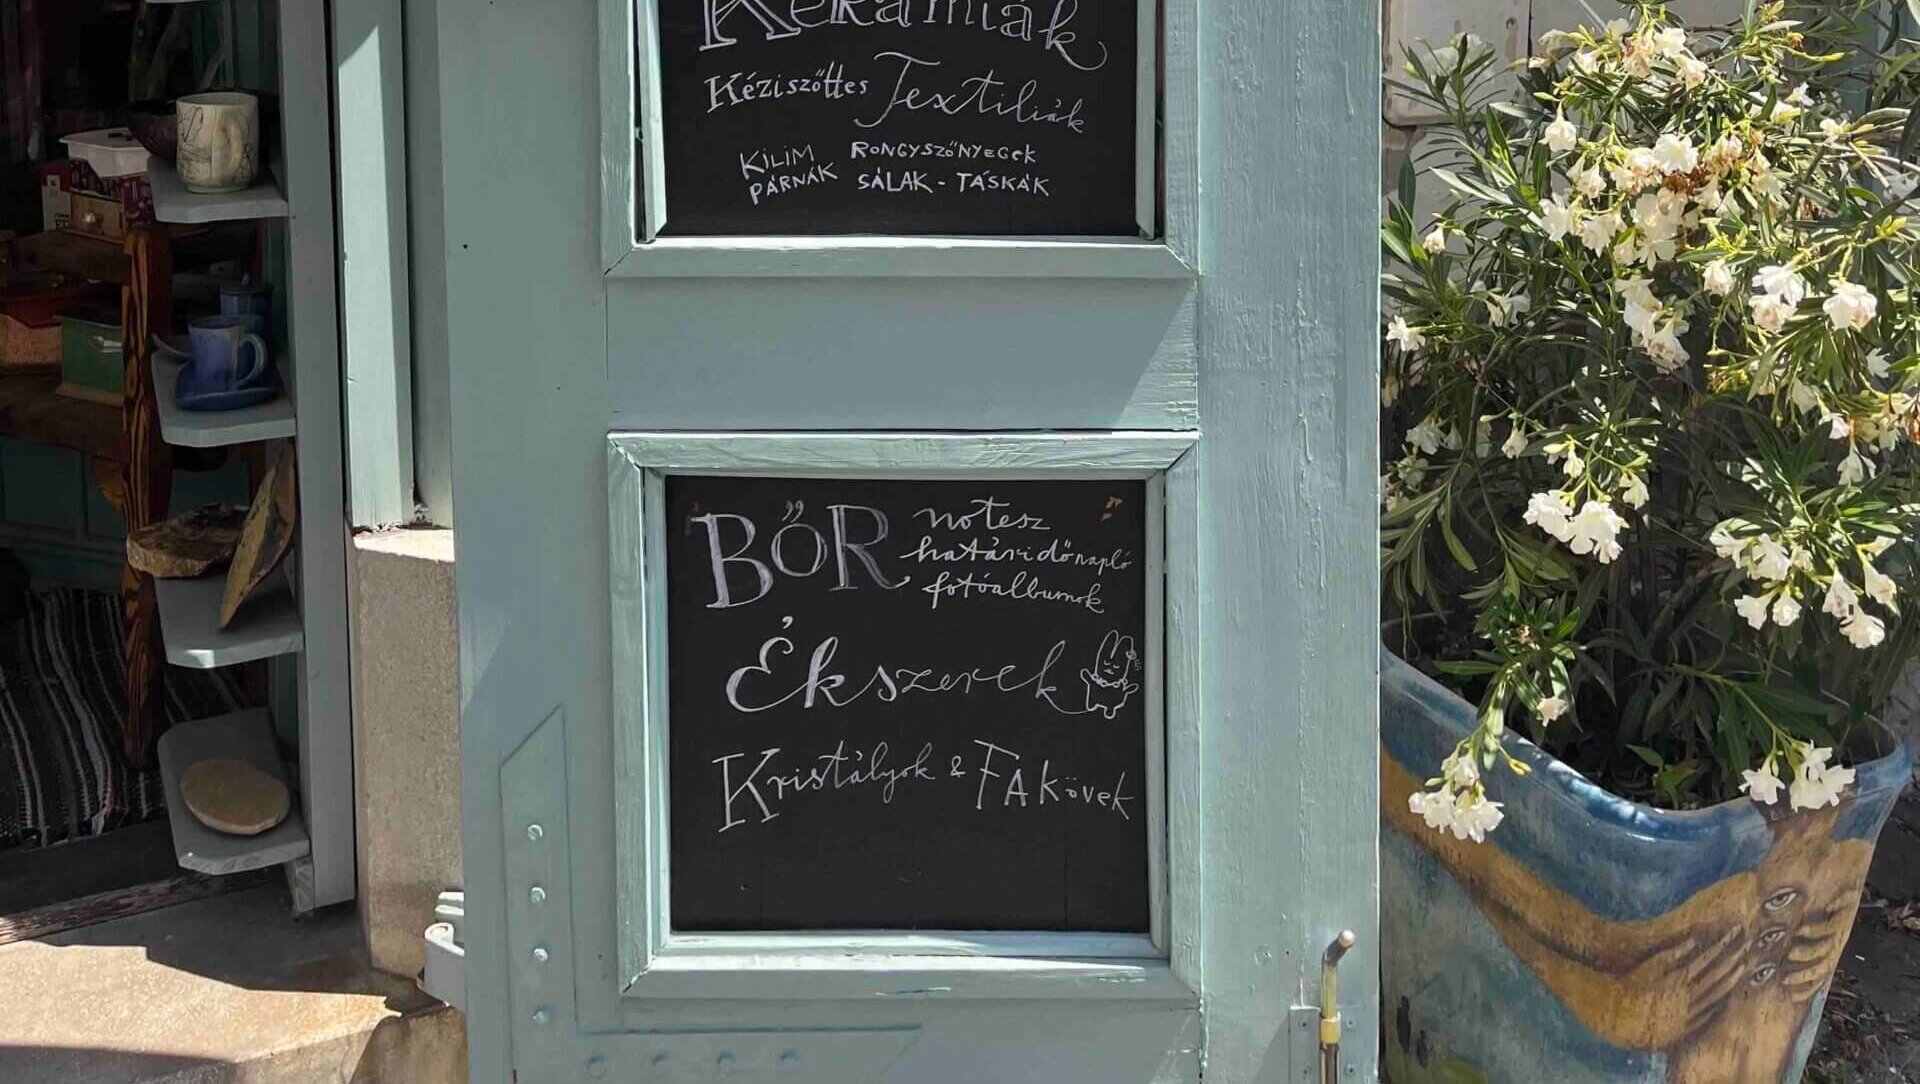 Kerámiák
Kéziszőttes Textiliák
KILIM PÁRNÁK
RONGYSZŐNYEGEK
SÁLAK - TÁSKÁK
BŐR notesz
határidőnapló
fotóalbumok
Ékszerek
Kristályok & FAkövek